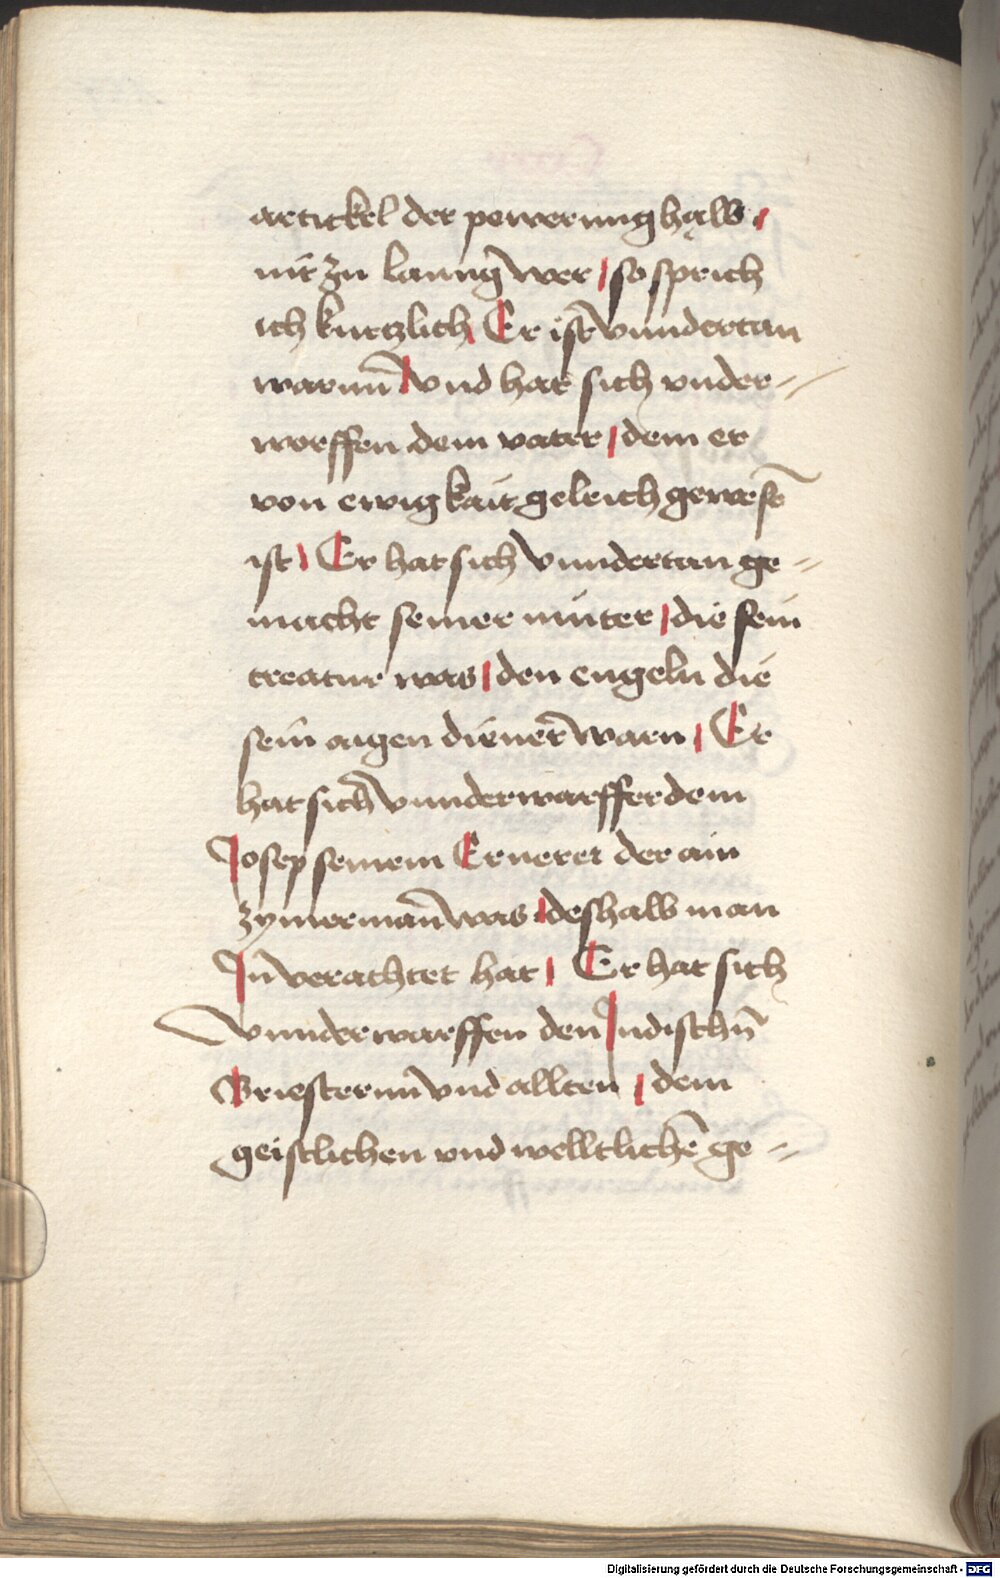 artickel der pewerung halb
nit zu lanng wer / so sprich
ich kurtzlich Er ist vnndertan
warnn̄ vnd hat sich vnder=
worffen dem vater / dem er
von ewigkait geleich gewesē
ist / Er hat sich vnndertan ge=
macht seiner muter / die sein
creatur was / den engeln die
sein aigen dienēr warn / Er
hat sich vnnderwarffer dem
Josep seinem Ernerer der ain
zymermān̄ was / deshalb man
Jn̄ verachtet hat / Er hat sich
vnnderwarffen den Judischn̄
Briesternn̄ vnd allten / dem
geistlichen vnd welltlichē ge=
Digitalisierung gefördert durch die Deutsche Forschungsgemeinschaft - DFG